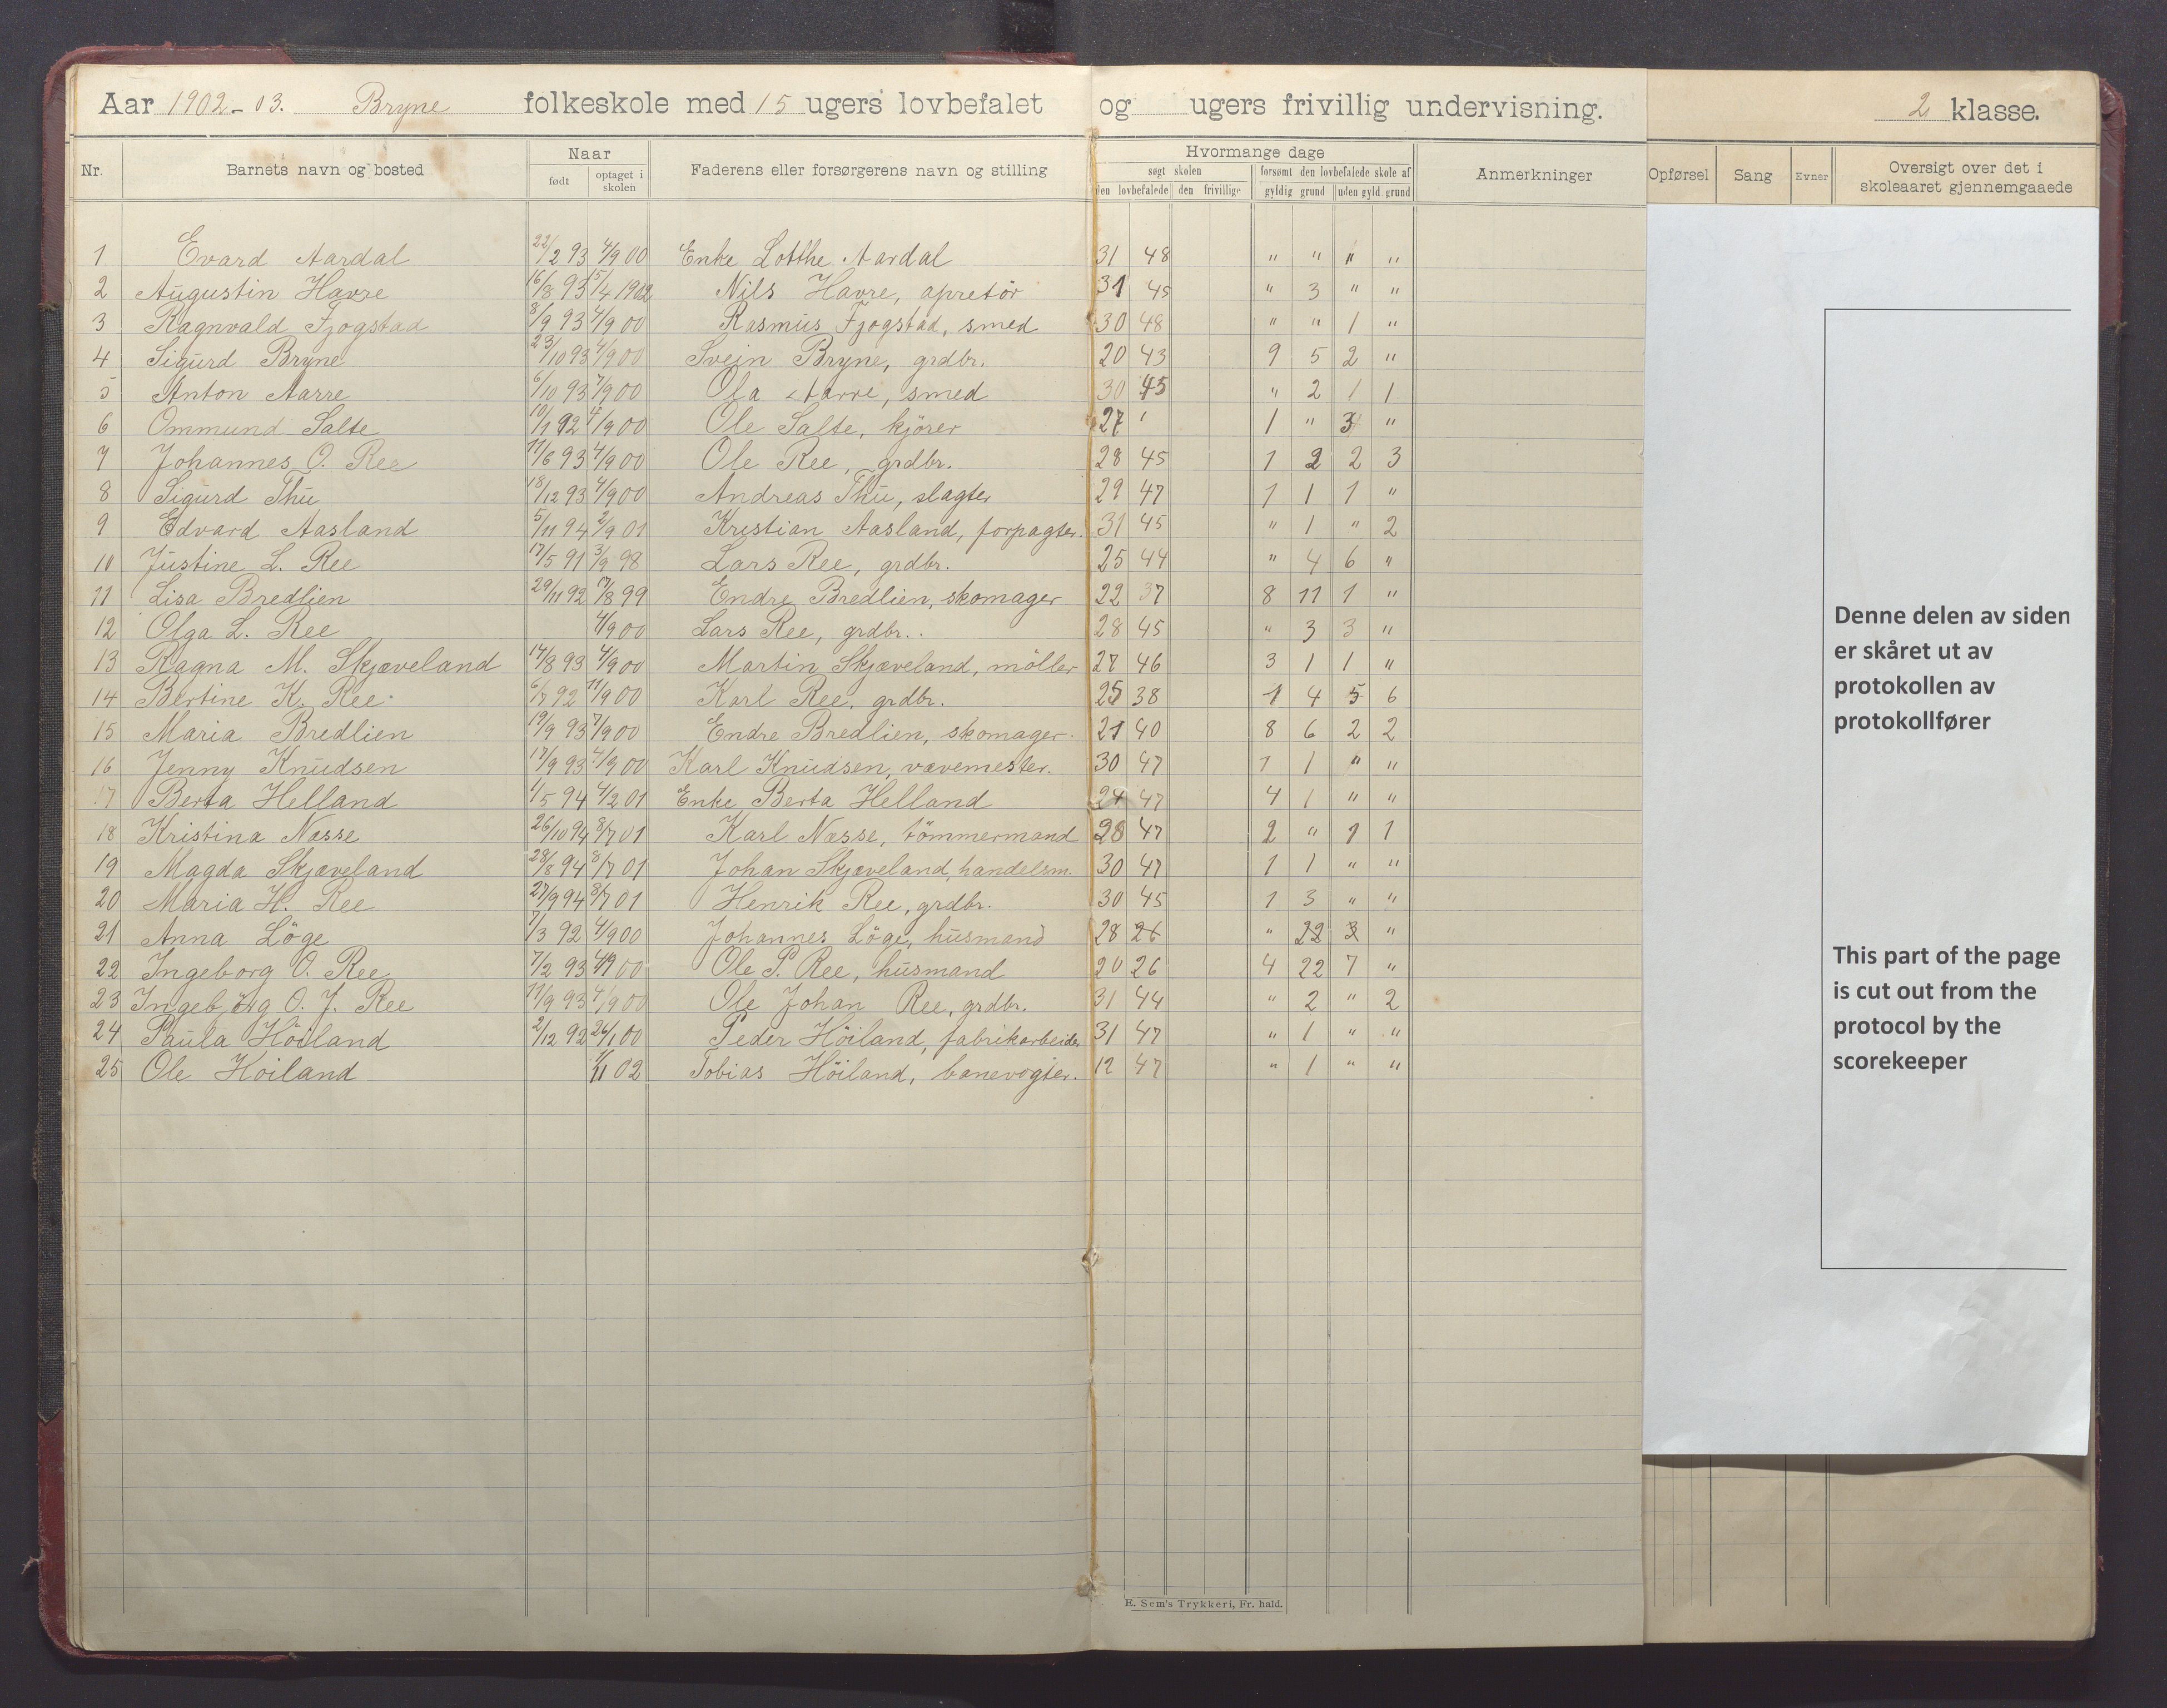 Aar 1902-03. Bryne folkeskole med 15 ugers lovbefalet og ugers frivillig undervisning. 2 klasse.
Nr. Barnets navn og bosted Naar født optaget i skolen Faderens eller forsørgerens navn og stilling Hvormange dage søgt skolen den lovbefalede den frivillige forsømt den lovbefalede skole af gyldig grund uden gyld. grund Anmerkninger Opførsel Sang Evner Oversigt over det i skoleaaret gjennemgaaede
1 Evard Aardal 22/2 93 4/9 00 Enke Lotthe Aardal 31 48 " " " "
2 Augustin Havre 16/8 93 15/4 1902 Nils Havre, apretör 31 45 " 3 " "
3 Ragnvald Fjogstad 8/9 93 4/9 00 Rasmus Fjogstad, smed 30 48 " " 1 "
4 Sigurd Bryne 23/10 93 4/9 00 Svein Bryne, grdbr. 20 43 9 5 2 "
5 Anton Aarre 6/10 93 7/9 00 Ola Aarre, smed 30 45 " 2 1 1
6 Ommund Salte 10/1 92 4/9 00 Ole Salte, kjörer 27 ' 1 " 3 "
7 Johannes O. Ree 11/6 93 4/9 00 Ole Ree, grdbr. 28 45 1 2 2 3
8 Sigurd Thu 18/12 93 4/9 00 Andreas Thu, slagter 29 47 1 1 1 "
9 Edvard Aasland 5/11 94 2/9 01 Kristian Aasland, forpagter. 31 45 " 1 " 2
10 Justine L. Ree 17/5 91 3/9 98 Lars Ree, grdbr. 25 44 " 4 6 "
11 Lisa Bredlien 29/11 92 17/8 99 Endre Bredlien, skomager 22 37 8 11 1 "
12 Olga L. Ree 4/9 00 Lars Ree, grdbr.. 28 45 " 3 3 "
13 Ragna M. Skjæveland 14/8 93 4/9 00 Martin Skjæveland, möller 27 46 3 1 1 "
14 Bertine K. Ree. 6/7 92 11/9 00 Karl Ree, grdbr. 25 38 1 4 5 6
15 Maria Bredlien 19/9 93 7/9 00 Endre Bredlien, skomager. 21 40 8 6 2 2
16 Jenny Knudsen 17/9 93 4/9 00 Karl Knudsen, vævemester. 30 47 1 1 " "
17 Berta Helland 1/5 94 4/2 01 Enke Berta Helland 24 47 4 1 " "
18 Kristina Næsse 26/10 94 8/7 01 Karl Næsse, tömmermand 28 47 2 " 1 1
19 Magda Skjæveland 28/8 94 8/7 01 Johan Skjæveland, handelsm. 30 47 1 1 " "
20 Maria H. Ree 27/9 94 8/7 01 Henrik Ree, grdbr. 30 45 1 3 " "
21 Anna Löge 7/3 92 4/9 00 Johannes Löge, husmand 28 26 " 22 3 "
22 Ingeborg O. Ree 7/2 93 4/9 00 Ole P. Ree, husmand 20 26 4 22 7 "
23 Ingebjörg O. J. Ree 11/9 93 4/9 00 Ole Johan Ree, grdbr. 31 44 " 2 " 2
24 Paula Höiland 2/12 92 26/1 00 Peder Höiland, fabrikarbeider 31 47 " 1 " "
25 Ole Höiland 1/11 02 Tobias Höiland, banevogter. 12 47 " 1 " "
E. Sem's Trykkeri, Fr. hald.
Denne delen av siden
er skåret ut av
protokollen av
protokollfører
This part of the page
is cut out from the
protocol by the
scorekeeper